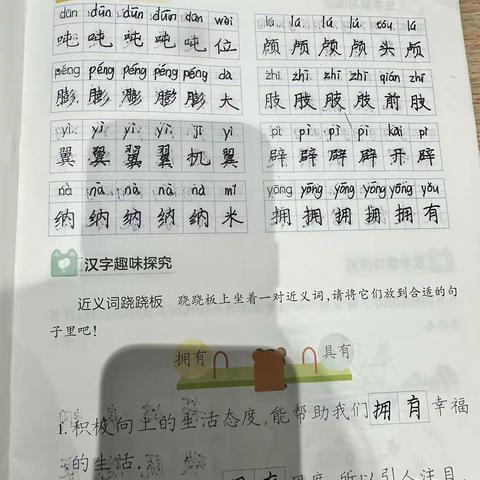 dūn dūn dūn dūn dūn wèi
吨 吨 吨 吨 吨 位
lú lú lú lú tóu lú
颅 颅 颅 颅 头 颅
péng péng péng péng péng dà
膨 膨 膨 膨 膨 大
zhī zhī zhī zhī qián zhī
肢 肢 肢 肢 前 肢
yì yì yì yì jī yì
翼 翼 翼 翼 机 翼
pì pì pì pì kāi pì
辟 辟 辟 辟 开 辟
nà nà nà nà nà mǐ
纳 纳 纳 纳 纳 米
yōng yōng yōng yōng yōng yǒu
拥 拥 拥 拥 拥 有
汉字趣味探究
近义词跷跷板 跷跷板上坐着一对近义词,请将它们放到合适的句
子里吧!
拥有 具有
1.积极向上的生活态度,能帮助我们拥有幸福
的生活.
所以引人注目.